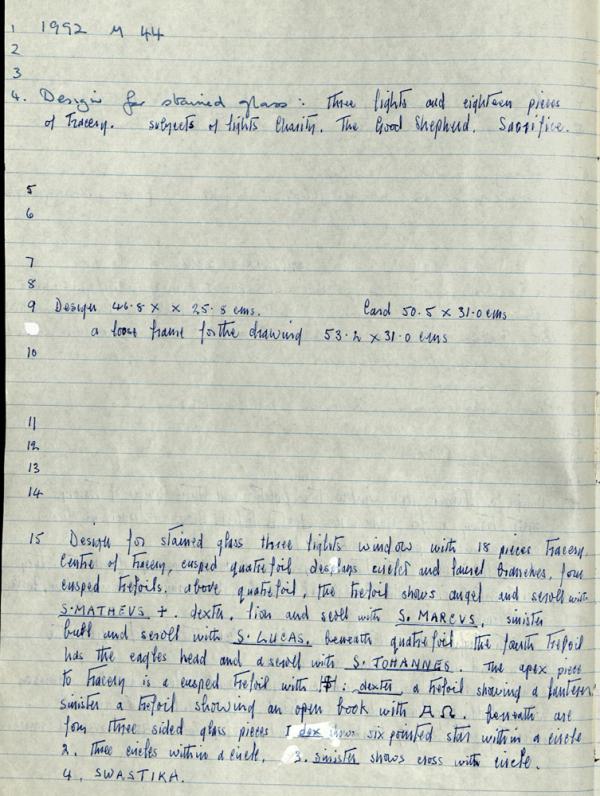 1 1992 M 44
2
3
4. Design for stained glass: three lights and eighteen pieces
of tracery. subjects of lights Charity. The Good Shepherd. Sacrifice.
5
6
7
8
9 Design 46.8 x x 25.8 cms. Card 50.5 x 31.0 cms
a loose frame for the drawing 53.2 x 31.0 cms
10
11
12
13
14
15 Design for stained glass three lights window with 18 pieces tracery.
Centre of tracery, cusped quatrefoil displays circlet and laurel branches, four
cusped trefoils. above quatrefoil, the trefoil shows angel and scroll with
S. MATHEVS +. dexter, lion and scroll with S. MARCVS, sinister
bull and scroll with S. LUCAS, beneath quatrefoil the fourth trefoil
has the eagles head and a scroll with S. JOHANNES. The apex piece
to tracery is a cusped trefoil with : dexter a trefoil showing a lantern
sinister a trefoil showing an open book with A Ω. beneath are
four three sided glass pieces 1 dex shows six pointed star within a circle
2. three circles within a circle. 3. sinister shows cross with circle.
4. SWASTIKA.